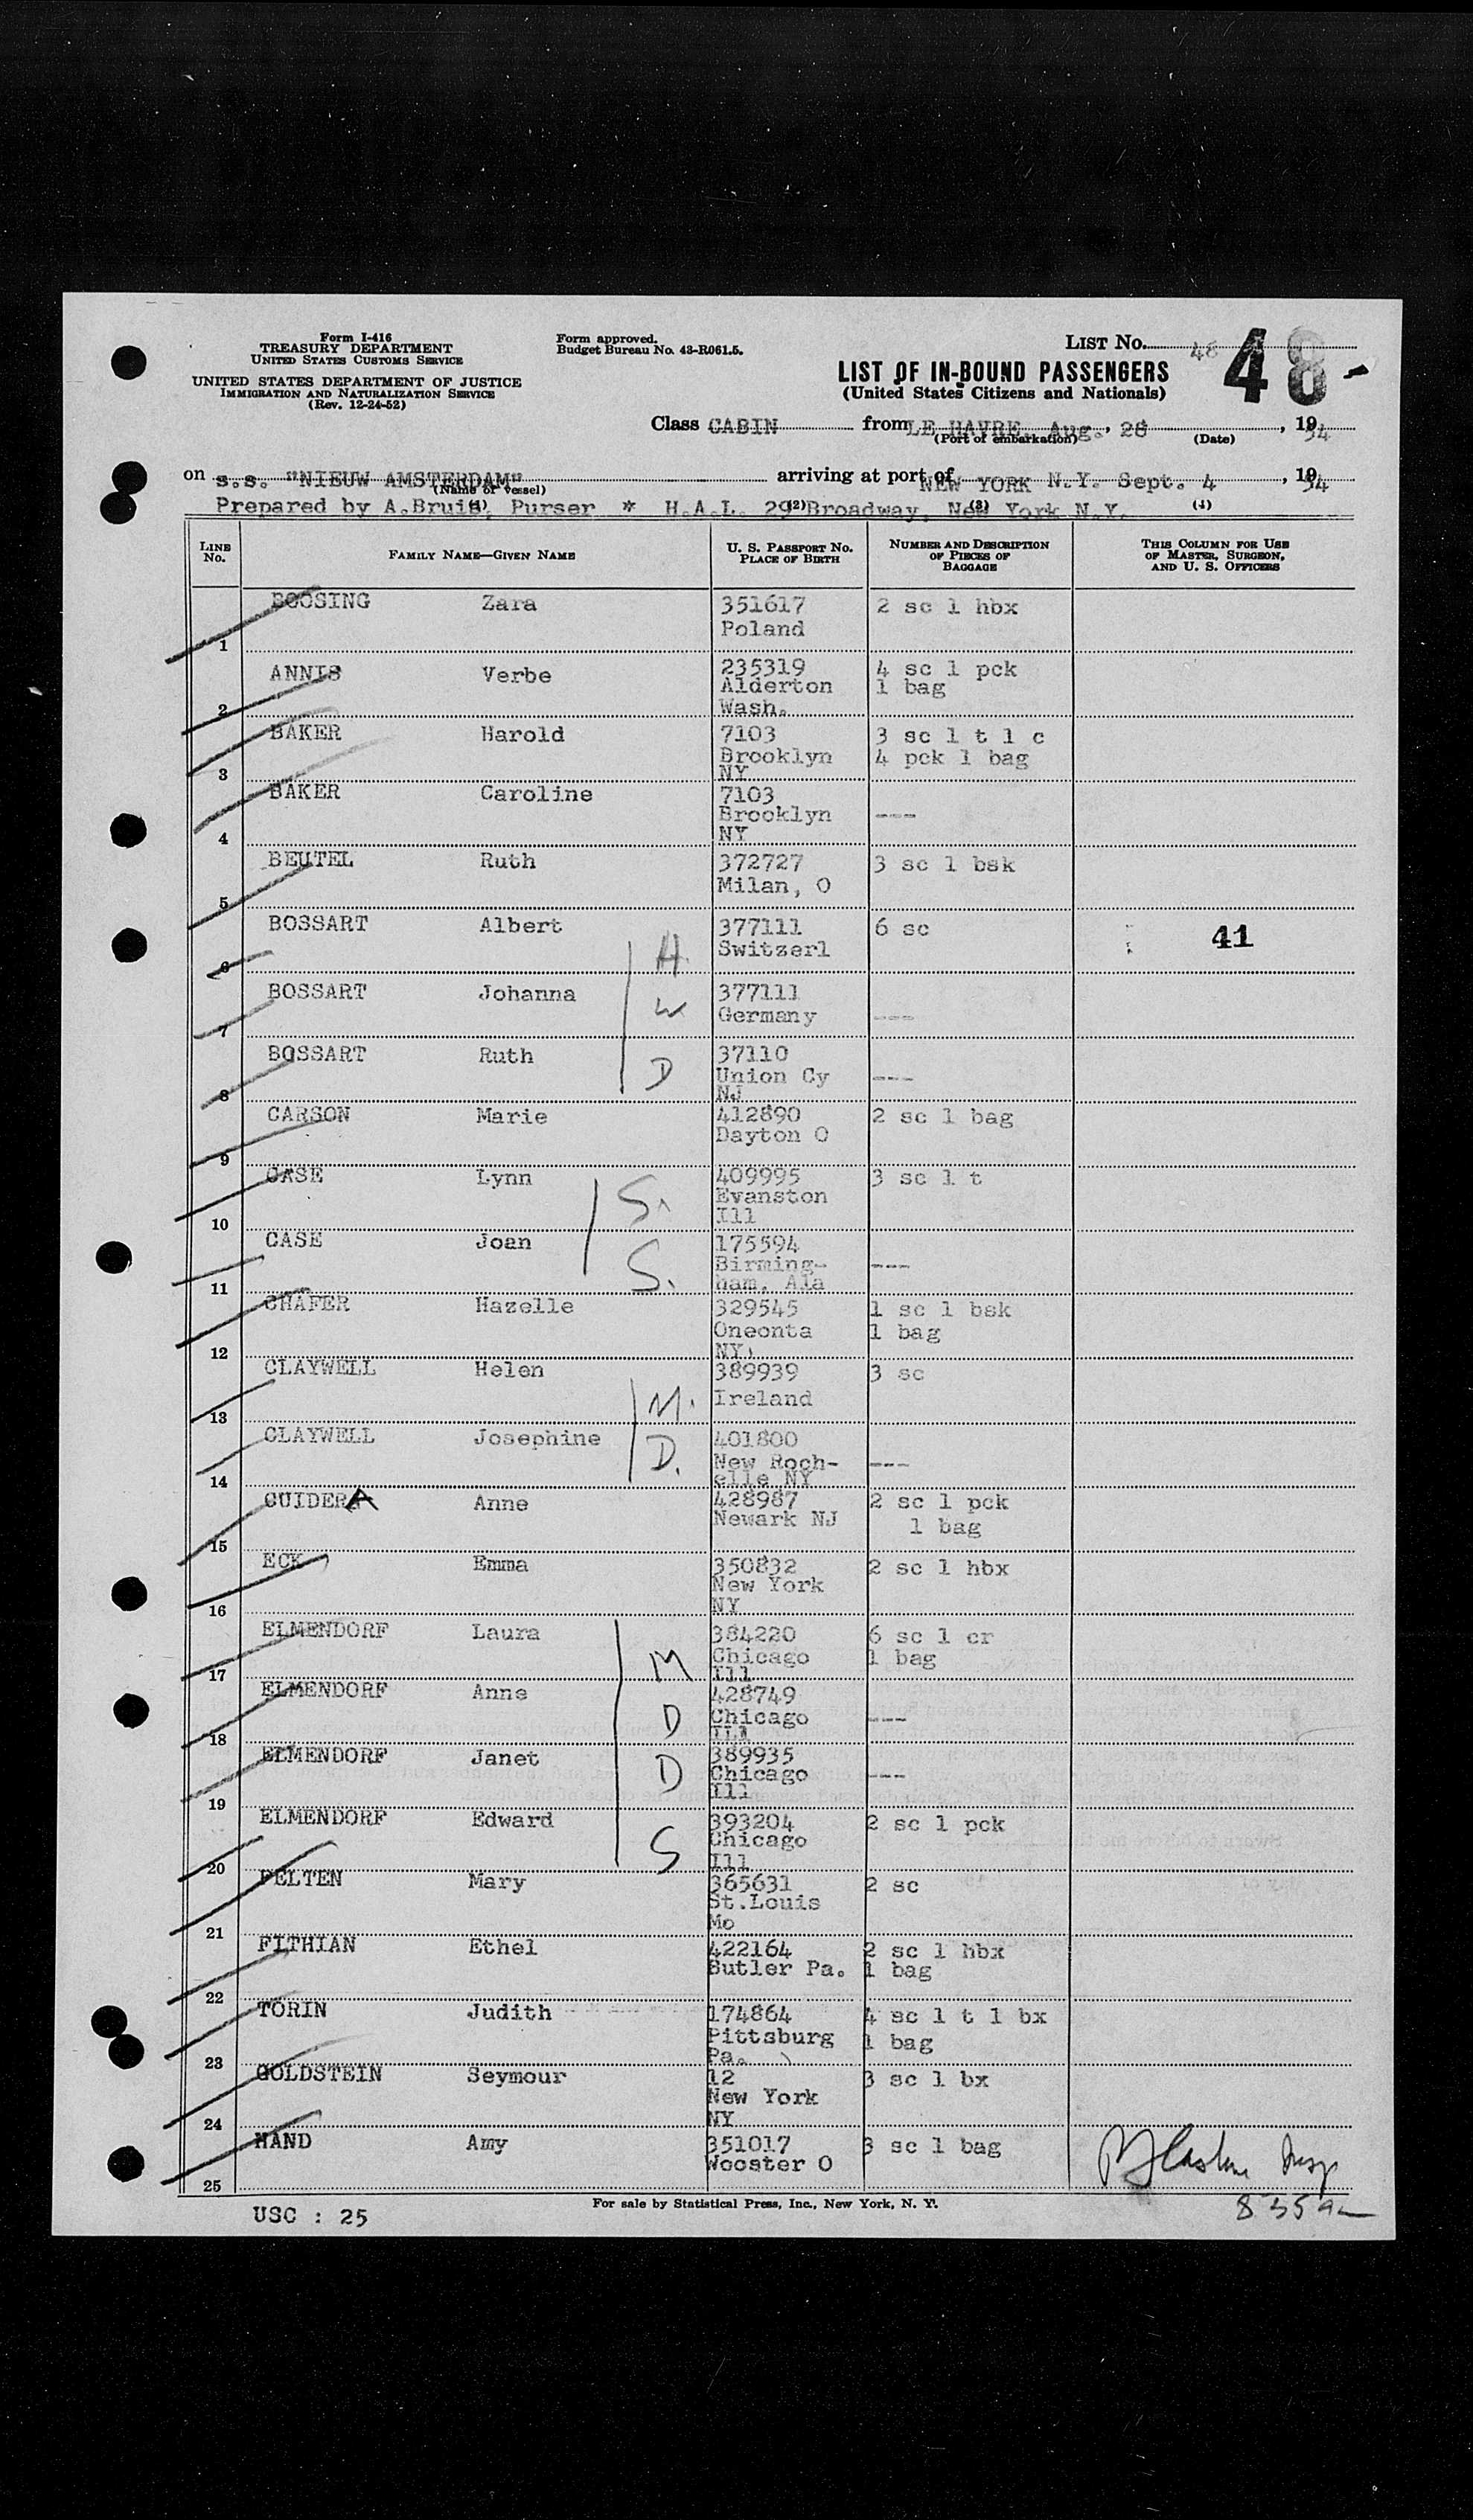 Form I-416
TREASURY DEPARTMENT
UNITED STATES CUSTOMS SERVICE
UNITED STATES DEPARTMENT OF JUSTICE
IMMIGRATION AND NATURALIZATION SERVICE
(Rev. 12-24-52)
Form approved.
Budget Bureau No. 43-R061.5.
LIST No. 48 48
LIST OF IN-BOUND PASSENGERS
(United States Citizens and Nationals)
Class CABIN from LE HAVRE, Aug. 28, 1954
(Port of embarkation) (Date)
on s.s. "NIEUW AMSTERDAM" arriving at port of NEW YORK N.Y. Sept. 4, 1954
(Name of vessel)
Prepared by A.Bruis, Purser * H.A.L. 29 Broadway, New York N.Y.
(1) (2) (3) (4)
LINE No. FAMILY NAME—GIVEN NAME U. S. PASSPORT No. PLACE OF BIRTH NUMBER AND DESCRIPTION OF PIECES OF BAGGAGE THIS COLUMN FOR USE OF MASTER, SURGEON, AND U. S. OFFICERS
1 BOOSING Zara 351617 2 sc 1 hbx
Poland
2 ANNIS Verbe 235319 4 sc 1 pck
Alderton 1 bag
Wash.
3 BAKER Harold 7103 3 sc 1 t 1 c
Brooklyn 4 pck 1 bag
NY
4 BAKER Caroline 7103
Brooklyn ---
NY
5 BEUTEL Ruth 372727 3 sc 1 bsk
Milan, O
6 BOSSART Albert H. 377111 6 sc 41
Switzerl
7 BOSSART Johanna W 377111
Germany ---
8 BOSSART Ruth D 37110
Union Cy ---
NJ
9 CARSON Marie 412890 2 sc 1 bag
Dayton O
10 CASE Lynn S. 409995 3 sc 1 t
Evanston
Ill
11 CASE Joan S. 175594
Birming- ---
ham, Ala
12 CHAFER Hazelle 329545 1 sc 1 bsk
Oneonta 1 bag
NY
13 CLAYWELL Helen M. 389939 3 sc
Ireland
14 CLAYWELL Josephine D. 401800
New Roch- ---
elle NY
15 GUIDERA Anne 428987 2 sc 1 pck
Newark NJ 1 bag
16 ECK Emma 350832 2 sc 1 hbx
New York
NY
17 ELMENDORF Laura M 384220 6 sc 1 cr
Chicago 1 bag
Ill
18 ELMENDORF Anne D 428749
Chicago ---
Ill
19 ELMENDORF Janet D 389935
Chicago ---
Ill
20 ELMENDORF Edward S 393204 2 sc 1 pck
Chicago
Ill
21 PELTEN Mary 365631 2 sc
St.Louis
Mo
22 FITHIAN Ethel 422164 2 sc 1 hbx
Butler Pa. 1 bag
23 TORIN Judith 174864 4 sc 1 t 1 bx
Pittsburg 1 bag
Pa.
24 GOLDSTEIN Seymour 12 3 sc 1 bx
New York
NY
25 HAND Amy 351017 3 sc 1 bag
Wooster O
Insp
For sale by Statistical Press, Inc., New York, N. Y.
USC : 25
8 35 am